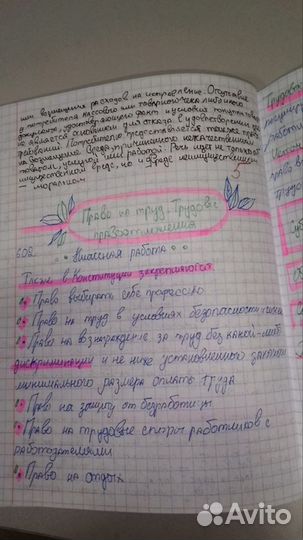 или возмещения расходов на исправление. Отсутствие
у потребителя кассового или товарного чека либо иного
документа, удостоверяющего факт и условия покупки товара
не является основанием для отказа в удовлетворении его
требований. Потребителю предоставляется также право
на возмещение вреда, причиненного некачественным
товаром, услугой или работой. Речь идет не только об
имущественном вреде, но и вреде неимущественном
– моральном
5
Право на труд. Трудовые
правоотношения
6.02
Классная работа
Также в Конституции закреплено:
Право выбирать себе профессию
Право на труд в условиях безопасности и
Право на вознаграждение за труд без какой-либо
дискриминации и не ниже установленного законом
минимального размера оплаты труда
Право на защиту от безработицы
Право на трудовые споры работников с
работодателями
Право на отдых
Avito